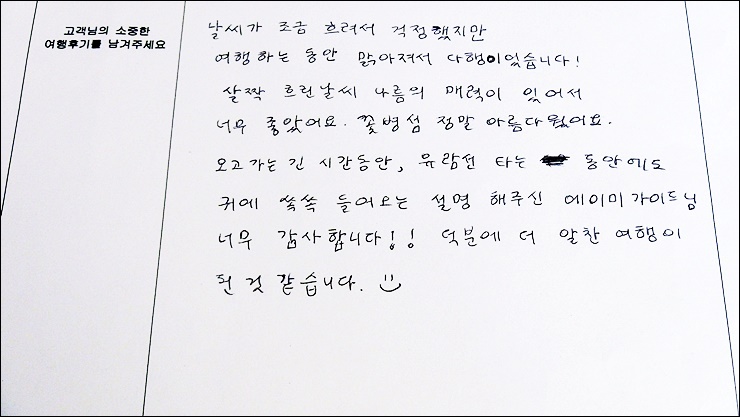 고객님의 소중한
여행후기를 남겨주세요
날씨가 조금 흐려서 걱정했지만
여행하는 동안 맑아져서 다행이었습니다!
살짝 흐린날씨 나름의 매력이 있어서
너무 좋았어요. 꽃병섬 정말 아름다웠어요.
오고가는 긴 시간동안, 유람선 타는 동안에도
귀에 쏙쏙 들어오는 설명 해주신 에이미가이드님
너무 감사합니다!! 덕분에 더 알찬 여행이
된 것 같습니다. :)